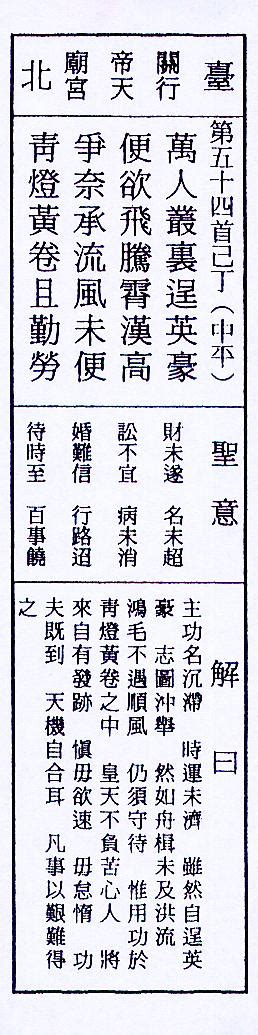 臺北
關帝廟
行天宮
第五十四首己丁（中平）
萬人叢裏逞英豪
便欲飛騰霄漢高
爭奈承流風未便
靑燈黃卷且勤勞
聖意
財未遂　名未超
訟不宜　病未消
婚難信　行路迢
待時至　百事饒
解曰
主功名沉滯　時運未濟　雖然自逞英
豪　志圖沖舉　然如舟楫未及洪流
鴻毛不遇順風　仍須守待　惟用功於
靑燈黃卷之中　皇天不負苦心人　將
來自有發跡　愼毋欲速　毋怠惰　功
夫既到　天機自合耳　凡事以艱難得
之